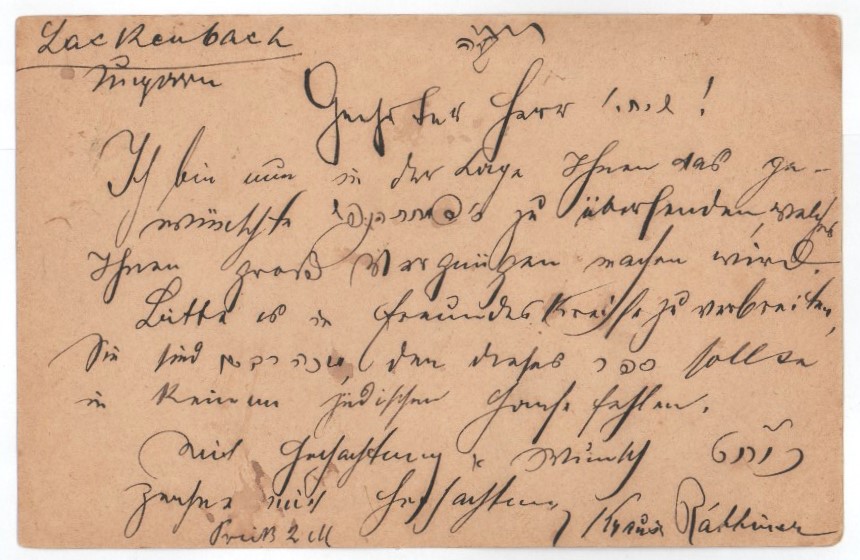 Lackenbach
Ungarn
Geehrter Herr !
Ich bin nun in der Lage Ihnen das ge-
wünschte zu übersenden, welches
Ihnen groß Vergnügen machen wird.
Bitte es in Freundeskreise zu verbreiten,
Sie sind den dieses ספר sollte
in keinem jüdischen Hause fehlen.
Mit Hochachtung
zeichne mich Hochachtung
Preiß 2 M